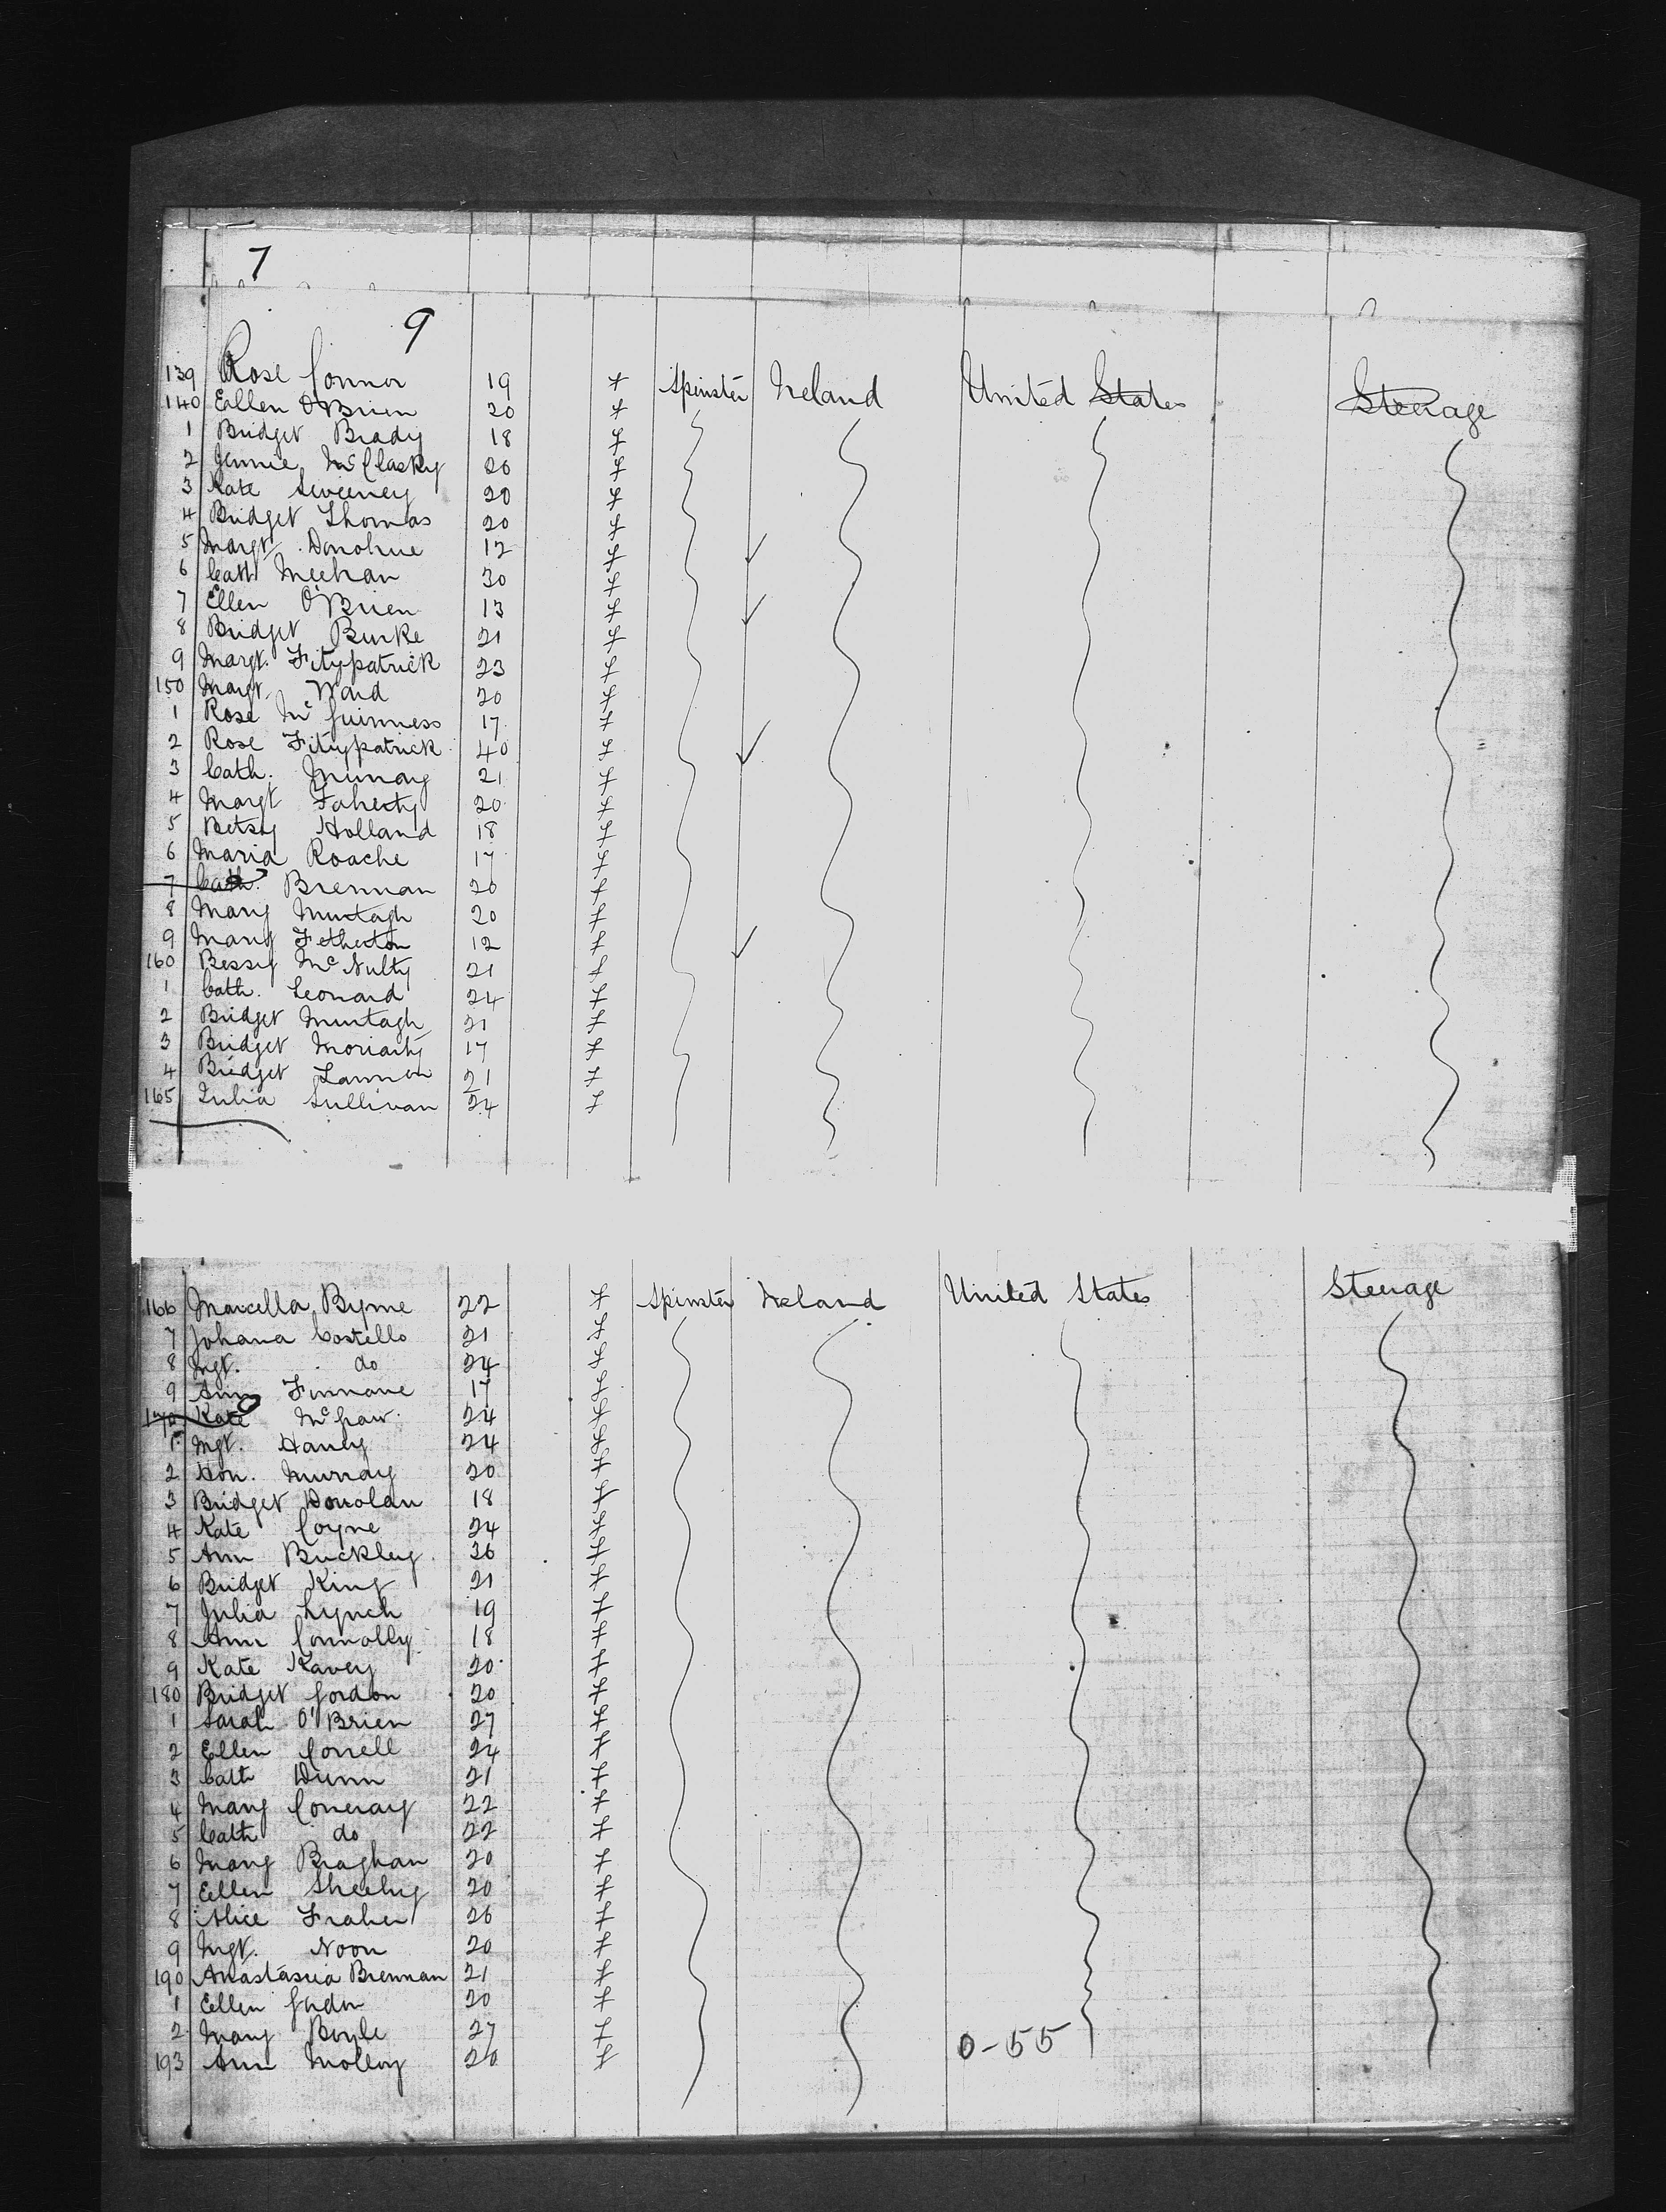 7
9
139 Rose Connor 19 f Spinster Ireland United States Steerage
140 Ellen O'Brien 20 f
1 Bridget Brady 18 f
2 Jennie McClasky 20 f
3 Kate Sweeney 20 f
4 Bridget Thomas 20 f
5 Margt. Donohue 12 f ✓
6 Cath Meehan 30 f
7 Ellen O'Brien 13 f ✓
8 Bridget Burke 21 f
9 Margt. Fitzpatrick 23 f
150 Margt. Ward 20 f
1 Rose McGuinness 17 f
2 Rose Fitzpatrick 40 f ✓
3 Cath. Murray 21 f
4 Margt Faherty 20 f
5 Betsy Holland 18 f
6 Maria Roache 17 f
7 Cath. Brennan 20 f
8 Mary Murtagh 20 f
9 Mary Fetherton 12 f ✓
160 Bessy McNulty 21 f
1 Cath. Leonard 24 f
2 Bridget Murtagh 21 f
3 Bridget Moriarty 17 f
4 Bridget Lannon 21 f
165 Julia Sullivan 24 f
166 Marcella Byrne 22 f Spinster Ireland United States Steerage
7 Johana Costello 21 f
8 Mgt. do 24 f
9 Ann Finnane 17 f
170 Kate McGraw 24 f
1 Mgt. Hanly 24 f
2 Hon. Murray 20 f
3 Bridget Donolan 18 f
4 Kate Coyne 24 f
5 Ann Buckley 36 f
6 Bridget King 21 f
7 Julia Lynch 19 f
8 Ann Connolly 18 f
9 Kate Kavey 20 f
180 Bridget Gordon 20 f
1 Sarah O'Brien 27 f
2 Ellen Correll 24 f
3 Cath Dunn 21 f
4 Mary Coneray 22 f
5 Cath do 22 f
6 Mary Braghan 20 f
7 Ellen Sheehy 20 f
8 Alice Fraher 26 f
9 Mgt. Noon 20 f
190 Anastasia Brennan 21 f
1 Ellen Gordon 20 f
2 Mary Boyle 27 f
193 Ann Molloy 20 f
0-55